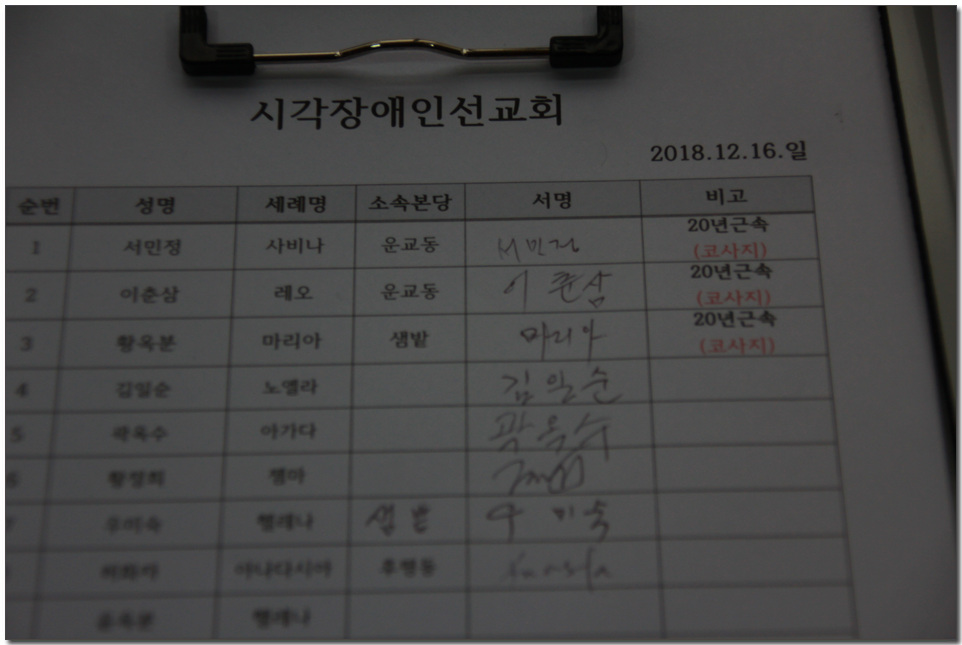 시각장애인선교회
2018.12.16.일
순번 성명 세례명 소속본당 서명 비고
1 서민정 사비나 운교동 서민정 20년근속
(코사지)
2 이춘삼 레오 운교동 이춘삼 20년근속
(코사지)
3 황옥분 마리아 샘밭 마리아 20년근속
(코사지)
4 김일순 노엘라 김일순
5 곽옥수 아가다 곽옥수
6 황정희 젬마
7 우미숙 헬레나 샘밭 우미숙
아나다시아 후평동
윤옥분 헬레나